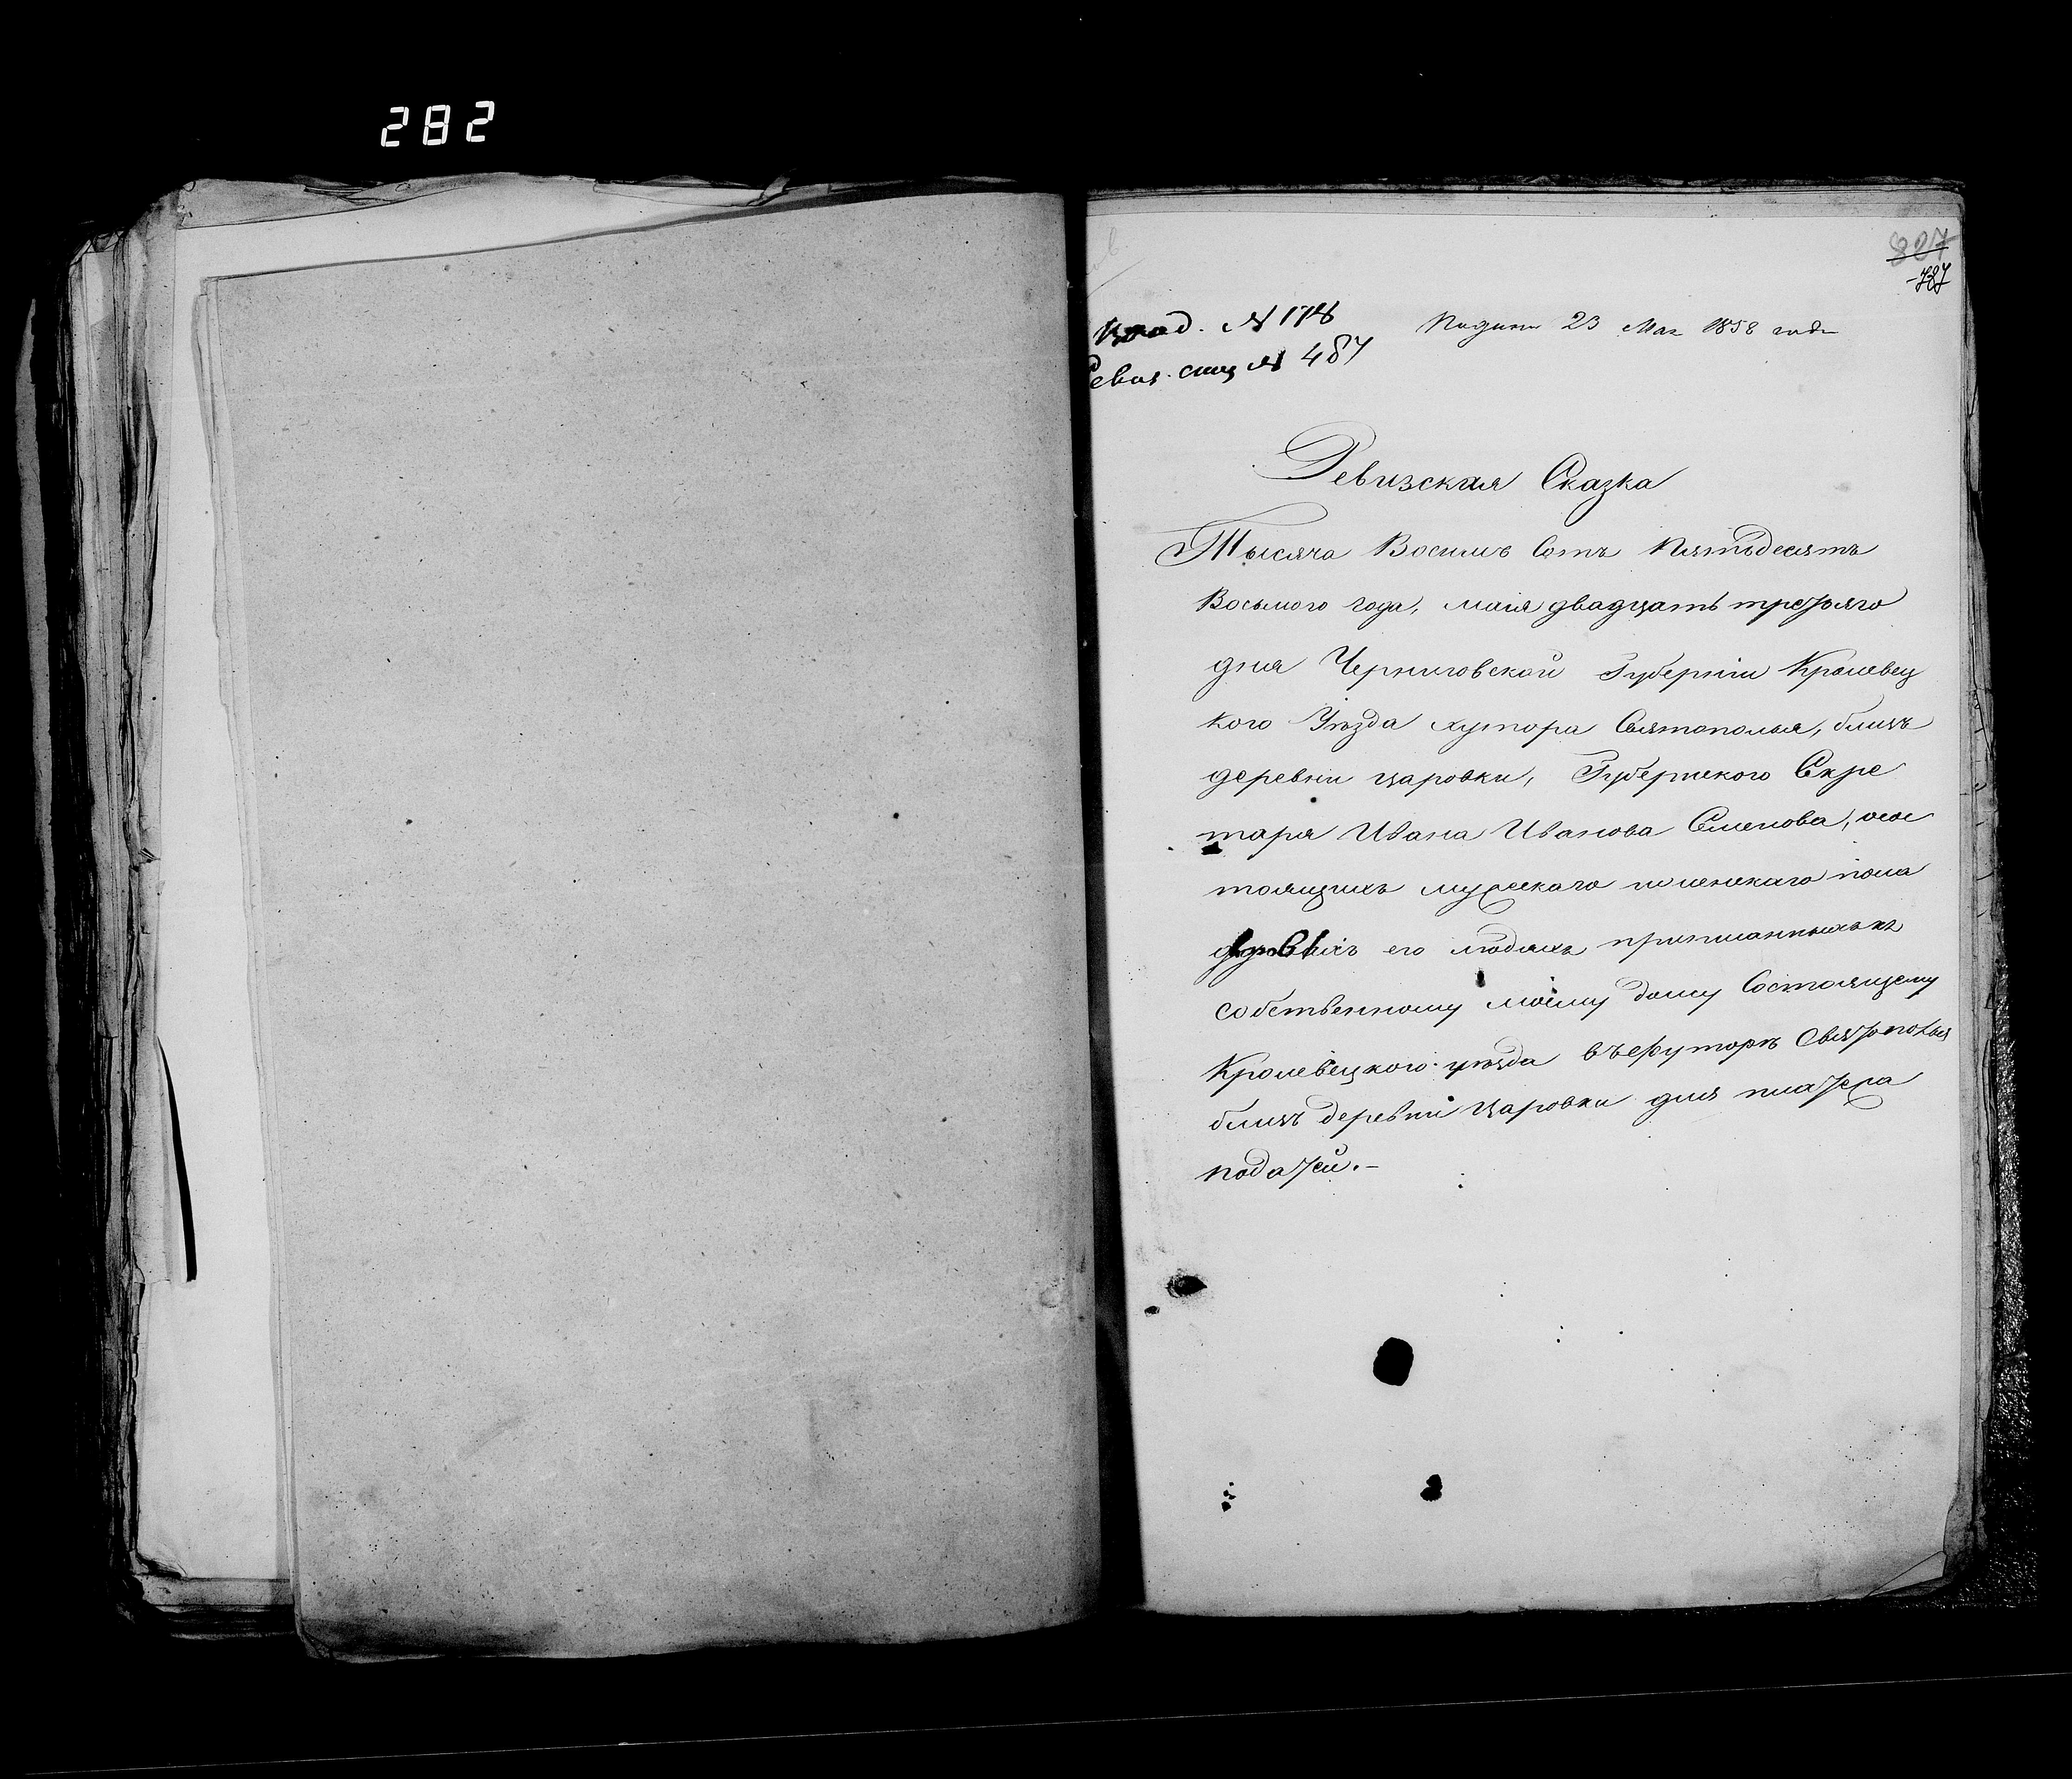 282
827
787
Влад. № 178
Подана 23 Мая 1858 года
Ревиз. стц № 487
Ревизская Сказка
Тысяча Восимъ Сотъ Пятьдесятъ
Восьмого года, маія двадцать третьяго
дня Черниговской Губерніи Кролевец
кого Уѣзда хутора Святополья, близъ
деревни царовки, Губернского Скре
таря Ивана Иванова Семенова, о сос
тоящихъ мужескаго и женскаго пола
дворовыхъ его людяхъ приписанныхъ къ
собственному моему дому Состоящему
Кролевецкого уѣзда въ хуторѣ Святополья
близъ деревни царовки для платежа
податей.-